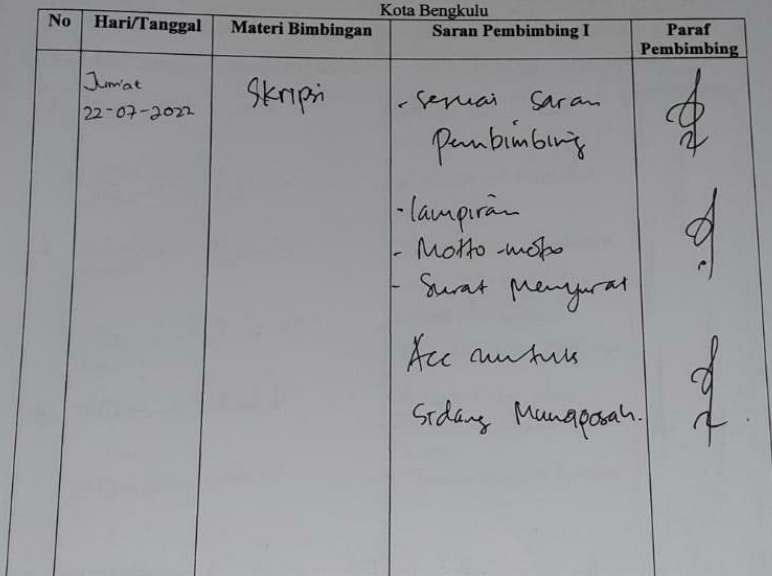 Kota Bengkulu
No Hari/Tanggal Materi Bimbingan Saran Pembimbing I Paraf Pembimbing
Jum'at
22-07-2022
Skripsi
- Sesuai Saran
Pembimbing
- lampiran
- Motto-moto
- Surat Menyurat
Acc untuk
Sidang Munaqosah.